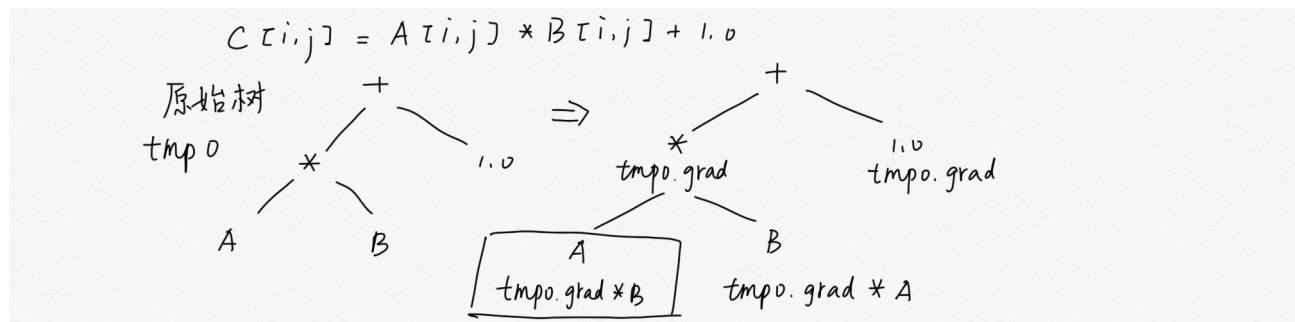 C[i,j] = A[i,j] * B[i,j] + 1.0
原始树
tmp0
+
*
1.0
A
B
⇒
+
*
tmp0.grad
1.0
tmp0.grad
A
tmp0.grad * B
B
tmp0.grad * A